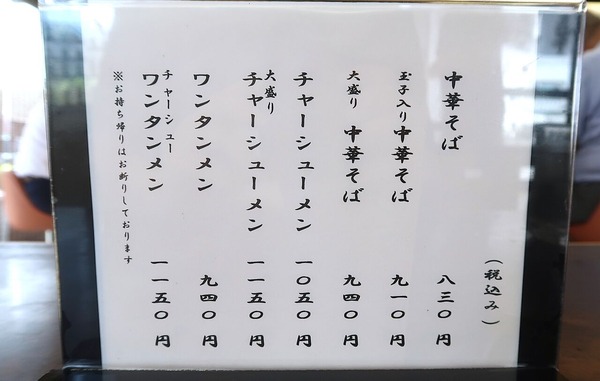 （税込み）
中華そば 八三〇円
玉子入り 中華そば 九一〇円
大盛り 中華そば 九四〇円
チャーシューメン 一〇五〇円
大盛り チャーシューメン 一一五〇円
ワンタンメン 九四〇円
チャーシュー ワンタンメン 一一五〇円
※お持ち帰りはお断りしております